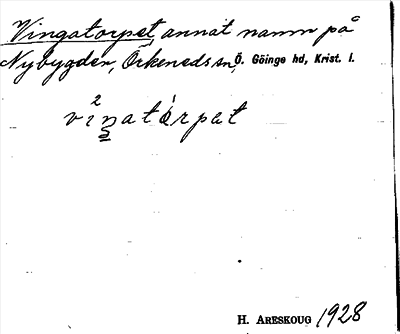 Vingatorpet, annat namn på
Nybygden, Örkeneds sn, Ö. Göinge hd, Krist. l.
vi²n̲atórpat
H. ARESKOUG 1928